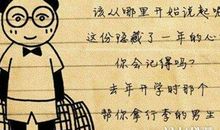 该从哪里开始说起呢
这份隐藏了一年的心
你会记得吗?
去年开学时那个
帮你拿行李的男生